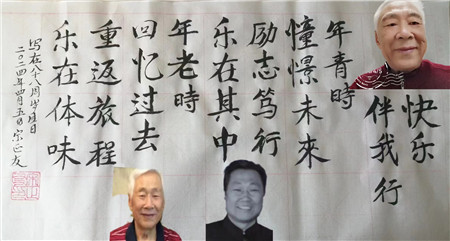 快乐
伴我行
年青時
憧憬未來
励志笃行
乐在其中
年老時
回忆过去
重返旅程
乐在体味
写在八十八周岁生日
二〇二四年四月五日